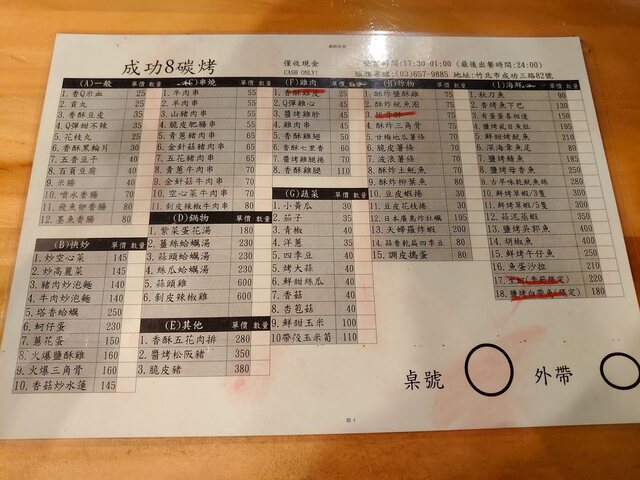 成功8碳烤
僅收現金
CASH ONLY!
營業時間:17:30-01:00 (最後出餐時間:24:00)
服務專線:(03)657-9885 地址:竹北市成功三路82號
(A)一般 單價 數量
1.香Q米血 25
2.貢丸 30
3.香酥豆皮 35
4.Q彈甜不辣 35
5.花枝丸 35
6.香酥黑輪片 30
7.五香豆干 40
8.百頁豆腐 40
9.米腸 40
10.噴水香腸 70
11.飛魚卵香腸 80
12.墨魚香腸 80
(B)快炒 單價 數量
1.炒空心菜 145
2.炒高麗菜 145
3.豬肉炒泡麵 140
4.牛肉炒泡麵 140
5.塔香蛤蠣 230
6.蚵仔蛋 230
7.蔥花蛋 150
8.火爆鹽酥雞 160
9.火爆三角骨 160
10.香菇炒水蓮 145
(C)串燒 單價 數量
1.牛肉串 55
2.羊肉串 55
3.山豬肉串 55
4.脆皮肥腸串 55
5.青蔥豬肉串 65
6.金針菇豬肉串 65
7.五花豬肉串 65
8.青蔥牛肉串 65
9.金針菇牛肉串 65
10.空心菜牛肉串 65
11.剝皮辣椒牛肉串 65
(D)鍋物 單價 數量
1.紫菜蛋花湯 180
2.薑絲蛤蠣湯 230
3.蒜頭蛤蠣湯 230
4.絲瓜蛤蠣湯 230
5.蒜頭雞 600
6.剝皮辣椒雞 600
(E)其他 單價 數量
1.香酥五花肉排 280
2.醬烤松阪豬 350
3.脆皮豬 380
(F)雞肉 單價 數量
1.香酥雞皮 25
2.Q彈雞心 45
3.醬烤雞胗 45
4.雞肉串 45
5.香酥雞翅 50
6.香酥七里香 60
7.醬烤雞腿捲 70
8.香酥雞腿 110
(G)蔬菜 單價 數量
1.小黃瓜 30
2.茄子 35
3.青椒 40
4.洋蔥 35
5.四季豆 40
6.烤大蒜 40
7.香菇 40
8.杏苞菇 40
9.鮮甜玉米 100
10帶殼玉米筍 110
(H)炸物 單價 數量
1.酥炸鹽酥雞 75
2.酥炸魷魚圈 75
4.酥炸三角骨 75
5.甘梅地瓜薯條 70
6.脆皮薯條 70
7.波浪薯條 70
8.酥炸土魠魚 70
9.酥炸柳葉魚 80
10.豆皮蝦捲
11.豆皮花枝捲
12.日本廣島炸牡蠣 195
13.天婦羅炸蝦 200
14.蒜香乾扁四季豆 80
15.調皮搗蛋 80
(I)海鮮
1.秋刀魚 90
2.香烤魚下巴 130
3.有蛋蛋喜相逢 150
4.鹽烤虱目魚肚 195
5.鮮甜烤魷魚 180
6.深海章魚足 80
7.鹽烤鯖魚 185
8.鹽烤母香魚 250
9.古早味軟絲魷魚絲 180
10.鮮烤草蝦/7隻 300
11.鮮烤草蝦/5隻 300
12.蒜泥蒸蝦 350
13.鹽烤吳郭魚 400
14.胡椒魚 400
15.鮮烤午仔魚 250
16.魚蛋沙拉 210
17.生蚵(季節限定) 220
18.鹽烤白帶魚(限定) 180
桌號
外帶